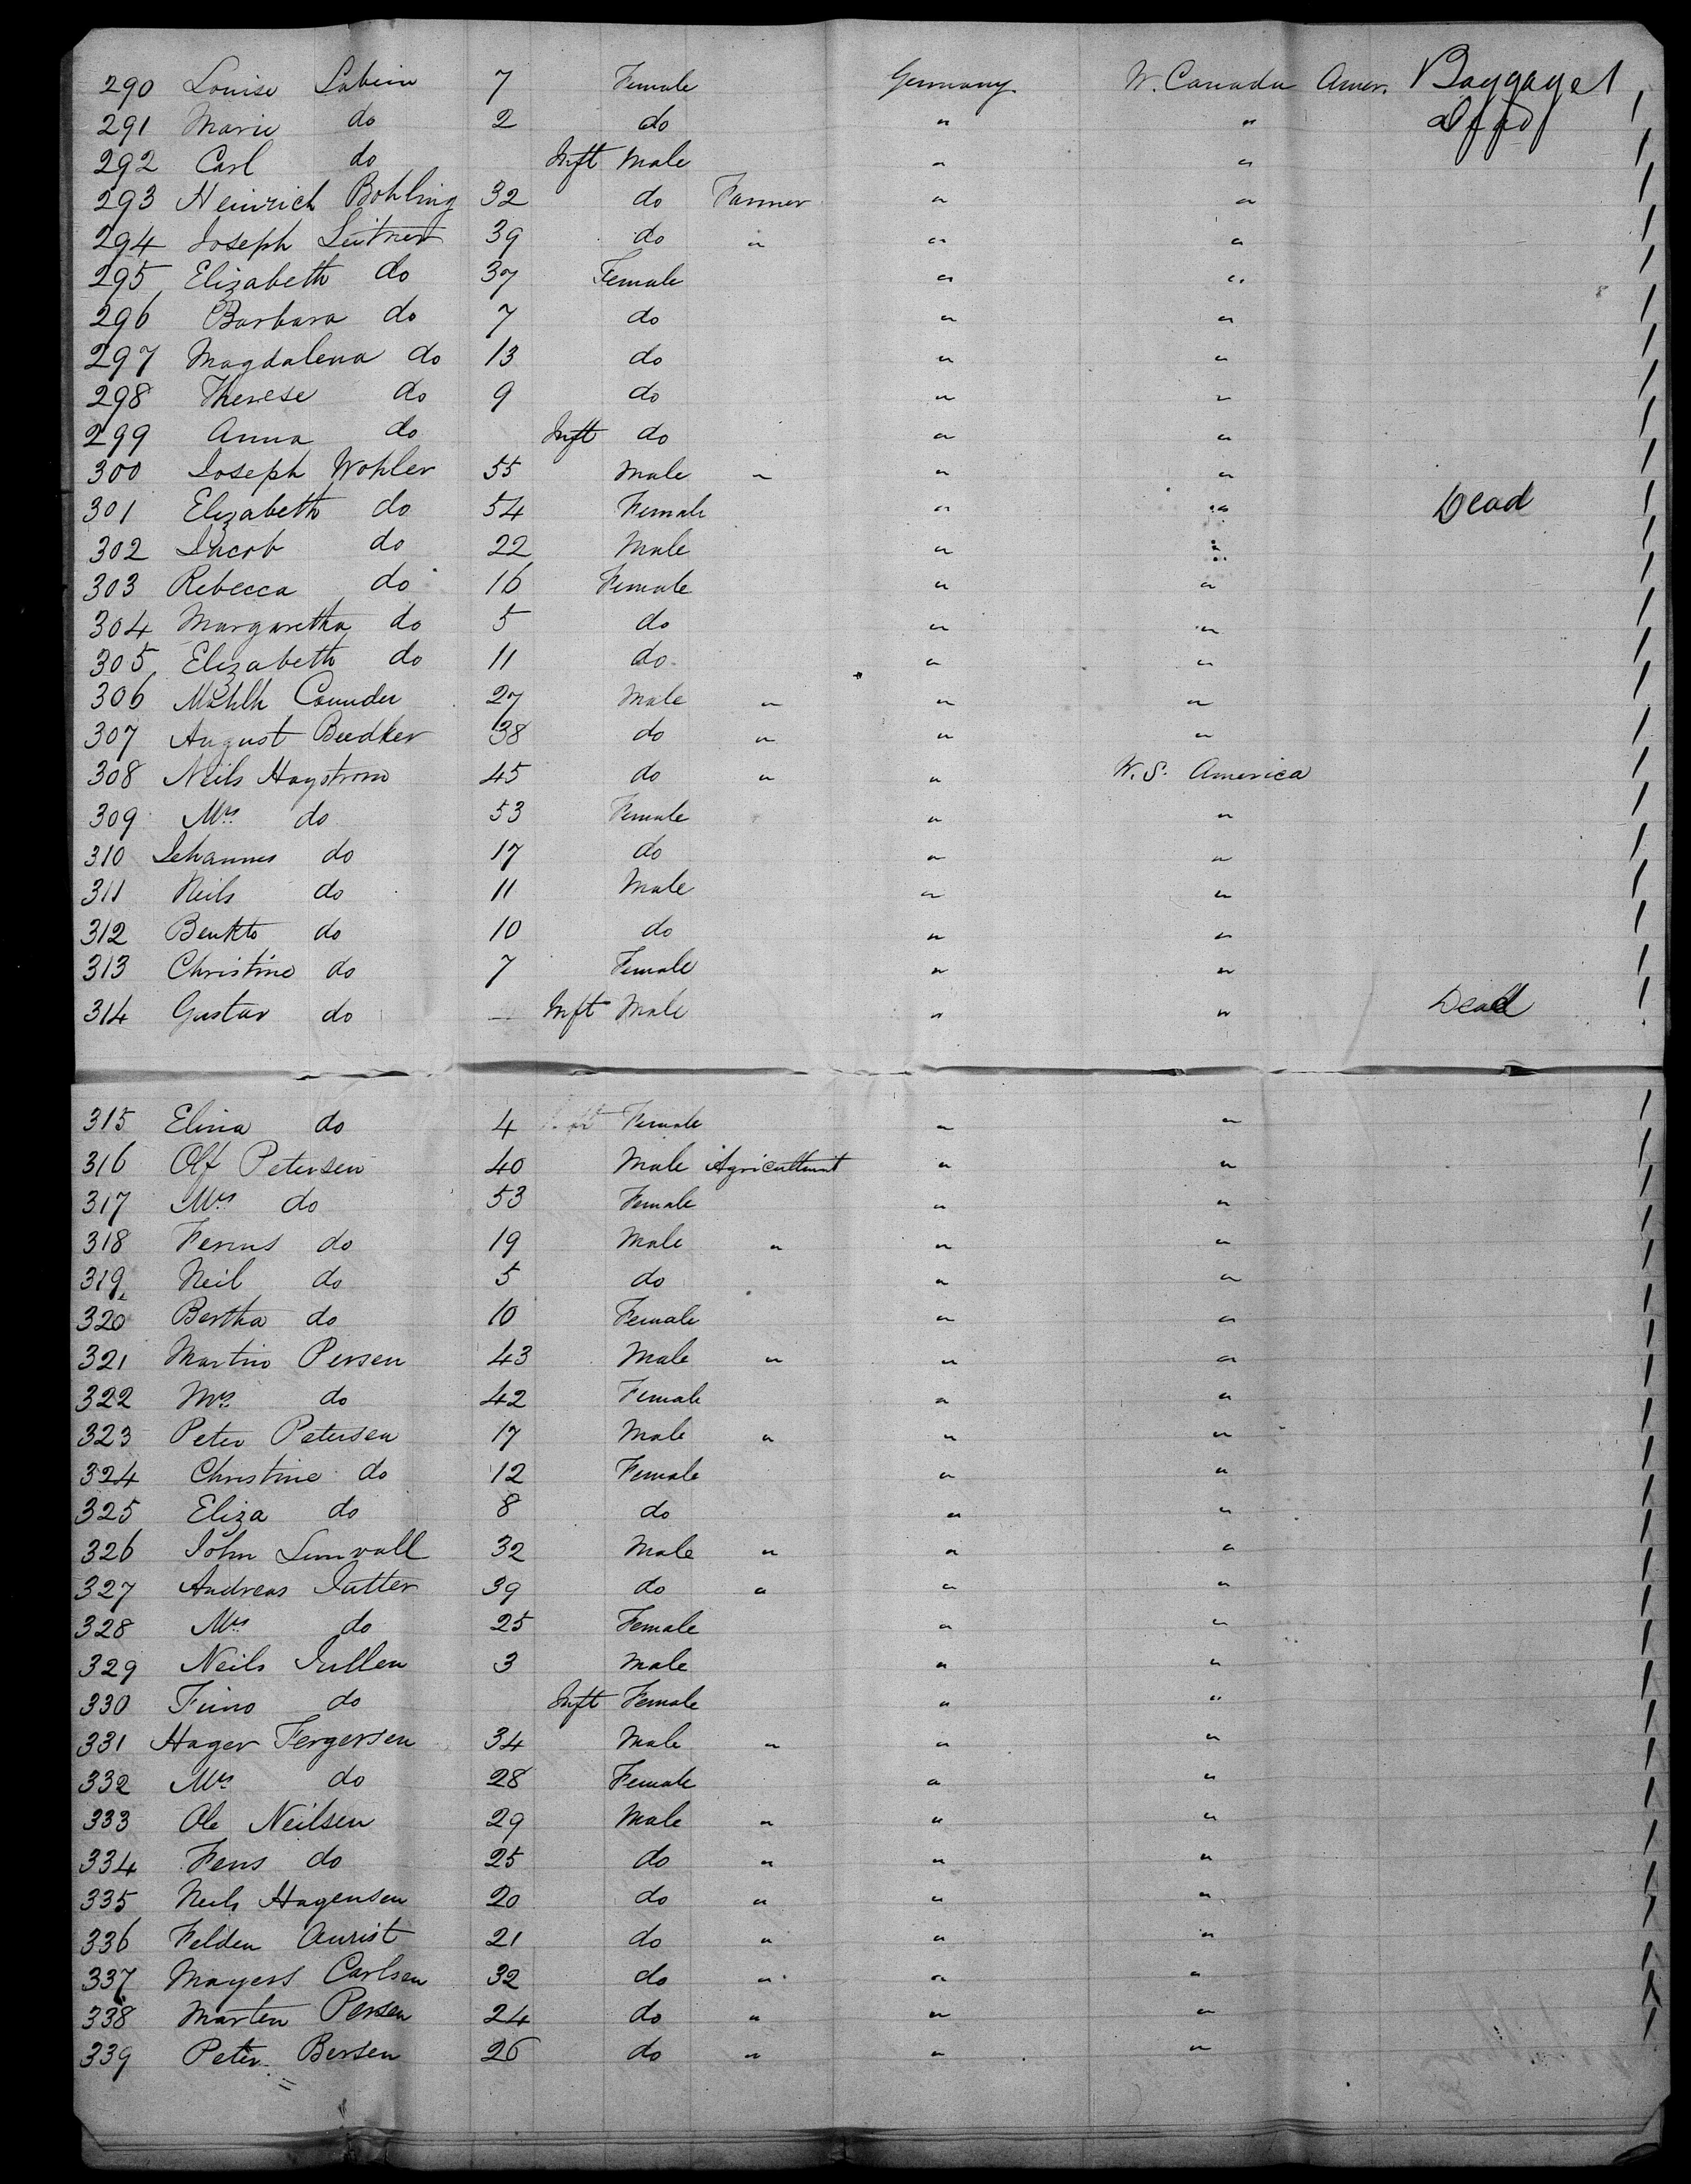 290 Louise Labein 7 Female Germany W. Canada Amer. Baggage 1
291 Marie do 2 do " "
292 Carl do Inft Male " "
293 Heinrich Bohling 32 do Farmer " "
294 Joseph Leitner 39 do " " "
295 Elizabeth do 37 Female " "
296 Barbara do 7 do " "
297 Magdalena do 13 do " "
298 Therese do 9 do " "
299 Anna do Inft do " "
300 Joseph Wohler 55 Male " " "
301 Elizabeth do 54 Female " " Dead
302 Jacob do 22 Male " "
303 Rebecca do 16 Female " "
304 Margaretha do 5 do " "
305 Elizabeth do 11 do " "
306 27 Male " " "
307 August Beedker 38 do " " "
308 Neils Hagstrom 45 do " " W.S. America
309 Mrs do 53 Female " "
310 Johannes do 17 do " "
311 Neils do 11 Male " "
312 Benkto do 10 do " "
313 Christine do 7 Female " "
314 Gustav do — Inft Male " " Dead
315 Elina do 4 Female " "
316 Olf Petersen 40 Male Agriculturist " "
317 Mrs do 53 Female " "
318 Ferns do 19 Male " " "
319 Neil do 5 do " "
320 Bertha do 10 Female " "
321 Martin Persen 43 Male " " "
322 Mrs do 42 Female " "
323 Peter Petersen 17 Male " " "
324 Christine do 12 Female " "
325 Eliza do 8 do " "
326 John Lunvall 32 Male " " "
327 Andreas Jutter 39 do " " "
328 Mrs do 25 Female " "
329 Neils Jullen 3 Male " "
330 Fino do Inft Female " "
331 Hager Fergersen 34 Male " " "
332 Mrs do 28 Female " "
333 Ole Neilsen 29 Male " " "
334 Fens do 25 do " " "
335 Neils Hagensen 20 do " " "
336 Felden Aurist 21 do " " "
337 Mayers Carlsen 32 do " " "
338 Marten Persen 24 do " " "
339 Peter Bersen 26 do " " "